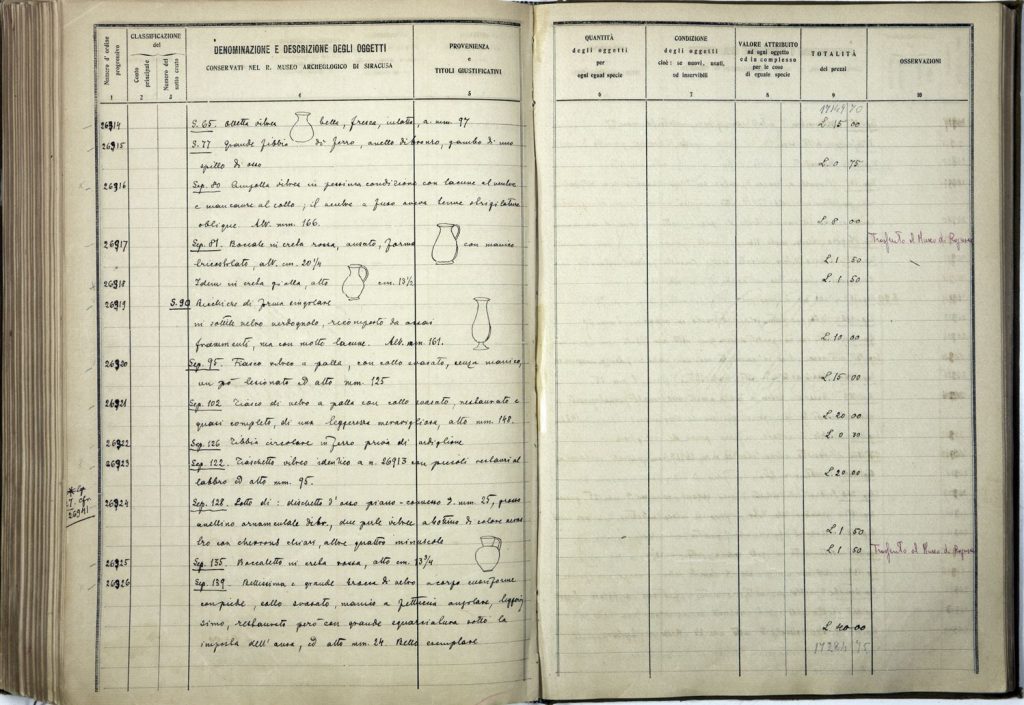 Numero d'ordine progressivo
CLASSIFICAZIONE
del
Conto principale
Numero del sotto conto
DENOMINAZIONE E DESCRIZIONE DEGLI OGGETTI
CONSERVATI NEL R. MUSEO ARCHEOLOGICO DI SIRACUSA
PROVENIENZA
e
TITOLI GIUSTIFICATIVI
1 2 3 4 5
26914 S. 65. Olletta vitrea bella, fresca, intatta, a. mm. 97
26915 S. 77 Grande fibbia di ferro, anello di bronzo, gambo di uno
spillo di osso
26916 Sep. 80 Ampolla vitrea in pessima condizione con lacune al ventre
e mancanze al collo; il ventre a fuso aveva tenue strigilature
oblique. Alt. mm. 166.
26917 Sep. 81. Boccale in creta rossa, ansato, forma con manico
alt. cm. 20 1/4
26918 Idem in creta gialla, alto cm. 13 1/2
26919 S. 90 Bicchiere di forma singolare
in sottile vetro verdognolo, ricomposto da assai
frammenti, ma con molte lacune. Alt. mm. 161.
26920 Sep. 95. Fiasco vitreo a palla, con collo svasato, senza manico,
un po' lesionato ed alto mm. 125
26921 Sep. 102 Fiasco di vetro a palla con collo svasato, restaurato e
quasi completo, di una leggerezza meravigliosa, alto mm. 148.
26922 Sep. 126 Fibbia circolare in ferro priva di ardiglione
26923 Sep. 122. Fiaschetto vitreo identico a n. 26913 con piccoli restauri al
labbro ed alto mm. 95.
26924 Sep. 128. Lotto di: dischetto d'osso piano-convesso d. mm. 25,
anellino ornamentale due perle vitree a botticino di colore
con chevrons chiari, altre quattro minuscole
26925 Sep. 135 Boccaletto in creta rossa, alto cm. 13 3/4
26926 Sep. 139. Bellissima e grande brocca di vetro a corpo cuoriforme
con piede, collo svasato, manico a fettuccia angolare,
simo, restaurato però con grande squarciatura sotto la
imposta dell'ansa, ed alto mm. 24. Bello esemplare
26941
QUANTITÀ
degli oggetti
per
ogni egual specie
CONDIZIONE
degli oggetti
cioè: se nuovi, usati,
od inservibili
VALORE ATTRIBUITO
ad ogni oggetto
ed in complesso
per le cose
di eguale specie
TOTALITÀ
dei prezzi
OSSERVAZIONI
6 7 8 9 10
17149 70
L. 15 00
L. 0 75
L. 8 00
Trasferito al Museo di Ragusa
L. 1 50
L. 1 50
L. 10 00
L. 15 00
L. 20 00
L. 20 00
L. 1 50
L. 1 50 Trasferito al Museo di Ragusa
L. 40 00
17284 75